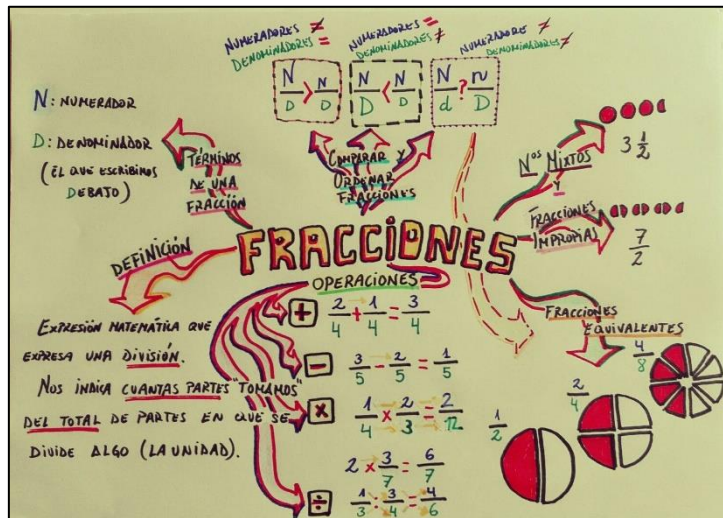 NUMERADORES ≠
DENOMINADORES =
NUMERADORES =
DENOMINADORES ≠
NUMERADORES ≠
DENOMINADORES ≠
N/D > N/D
N/D < N/D
N/d ? n/D
N: NUMERADOR
D: DENOMINADOR
(EL QUE ESCRIBIMOS
DEBAJO)
TÉRMINOS
DE UNA
FRACCIÓN
COMPARAR Y
ORDENAR
FRACCIONES
Nos MIXTOS
Y
FRACCIONES
IMPROPIAS
3 1/2
7/2
FRACCIONES
DEFINICIÓN
EXPRESIÓN MATEMÁTICA QUE
EXPRESA UNA DIVISIÓN.
NOS INDICA CUANTAS PARTES "TOMAMOS"
DEL TOTAL DE PARTES EN QUE SE
DIVIDE ALGO (LA UNIDAD).
OPERACIONES
+ 2/4 + 1/4 = 3/4
- 3/5 - 2/5 = 1/5
x 1/4 x 2/3 = 2/12
2 x 3/7 = 6/7
÷ 1/3 : 3/4 = 4/6
FRACCIONES
EQUIVALENTES
1/2
2/4
4/8